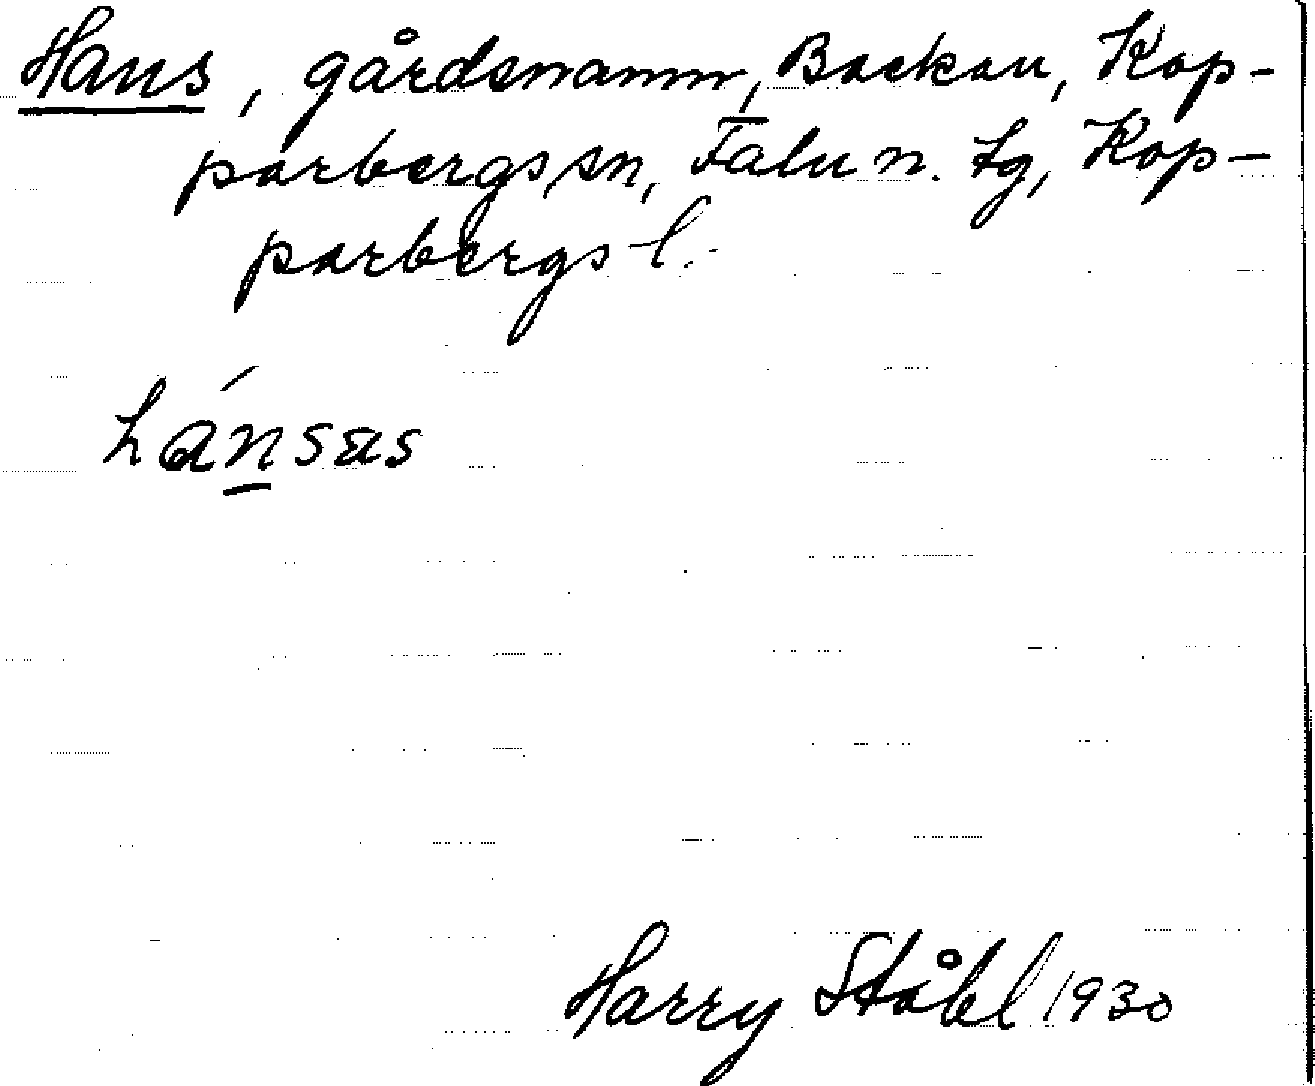 Hans, gårdsnamn, Backau, Kop-
parbergs sn, Falu n. tg, Kop-
parbergs l.
hánsas
Harry Ståhl 1930